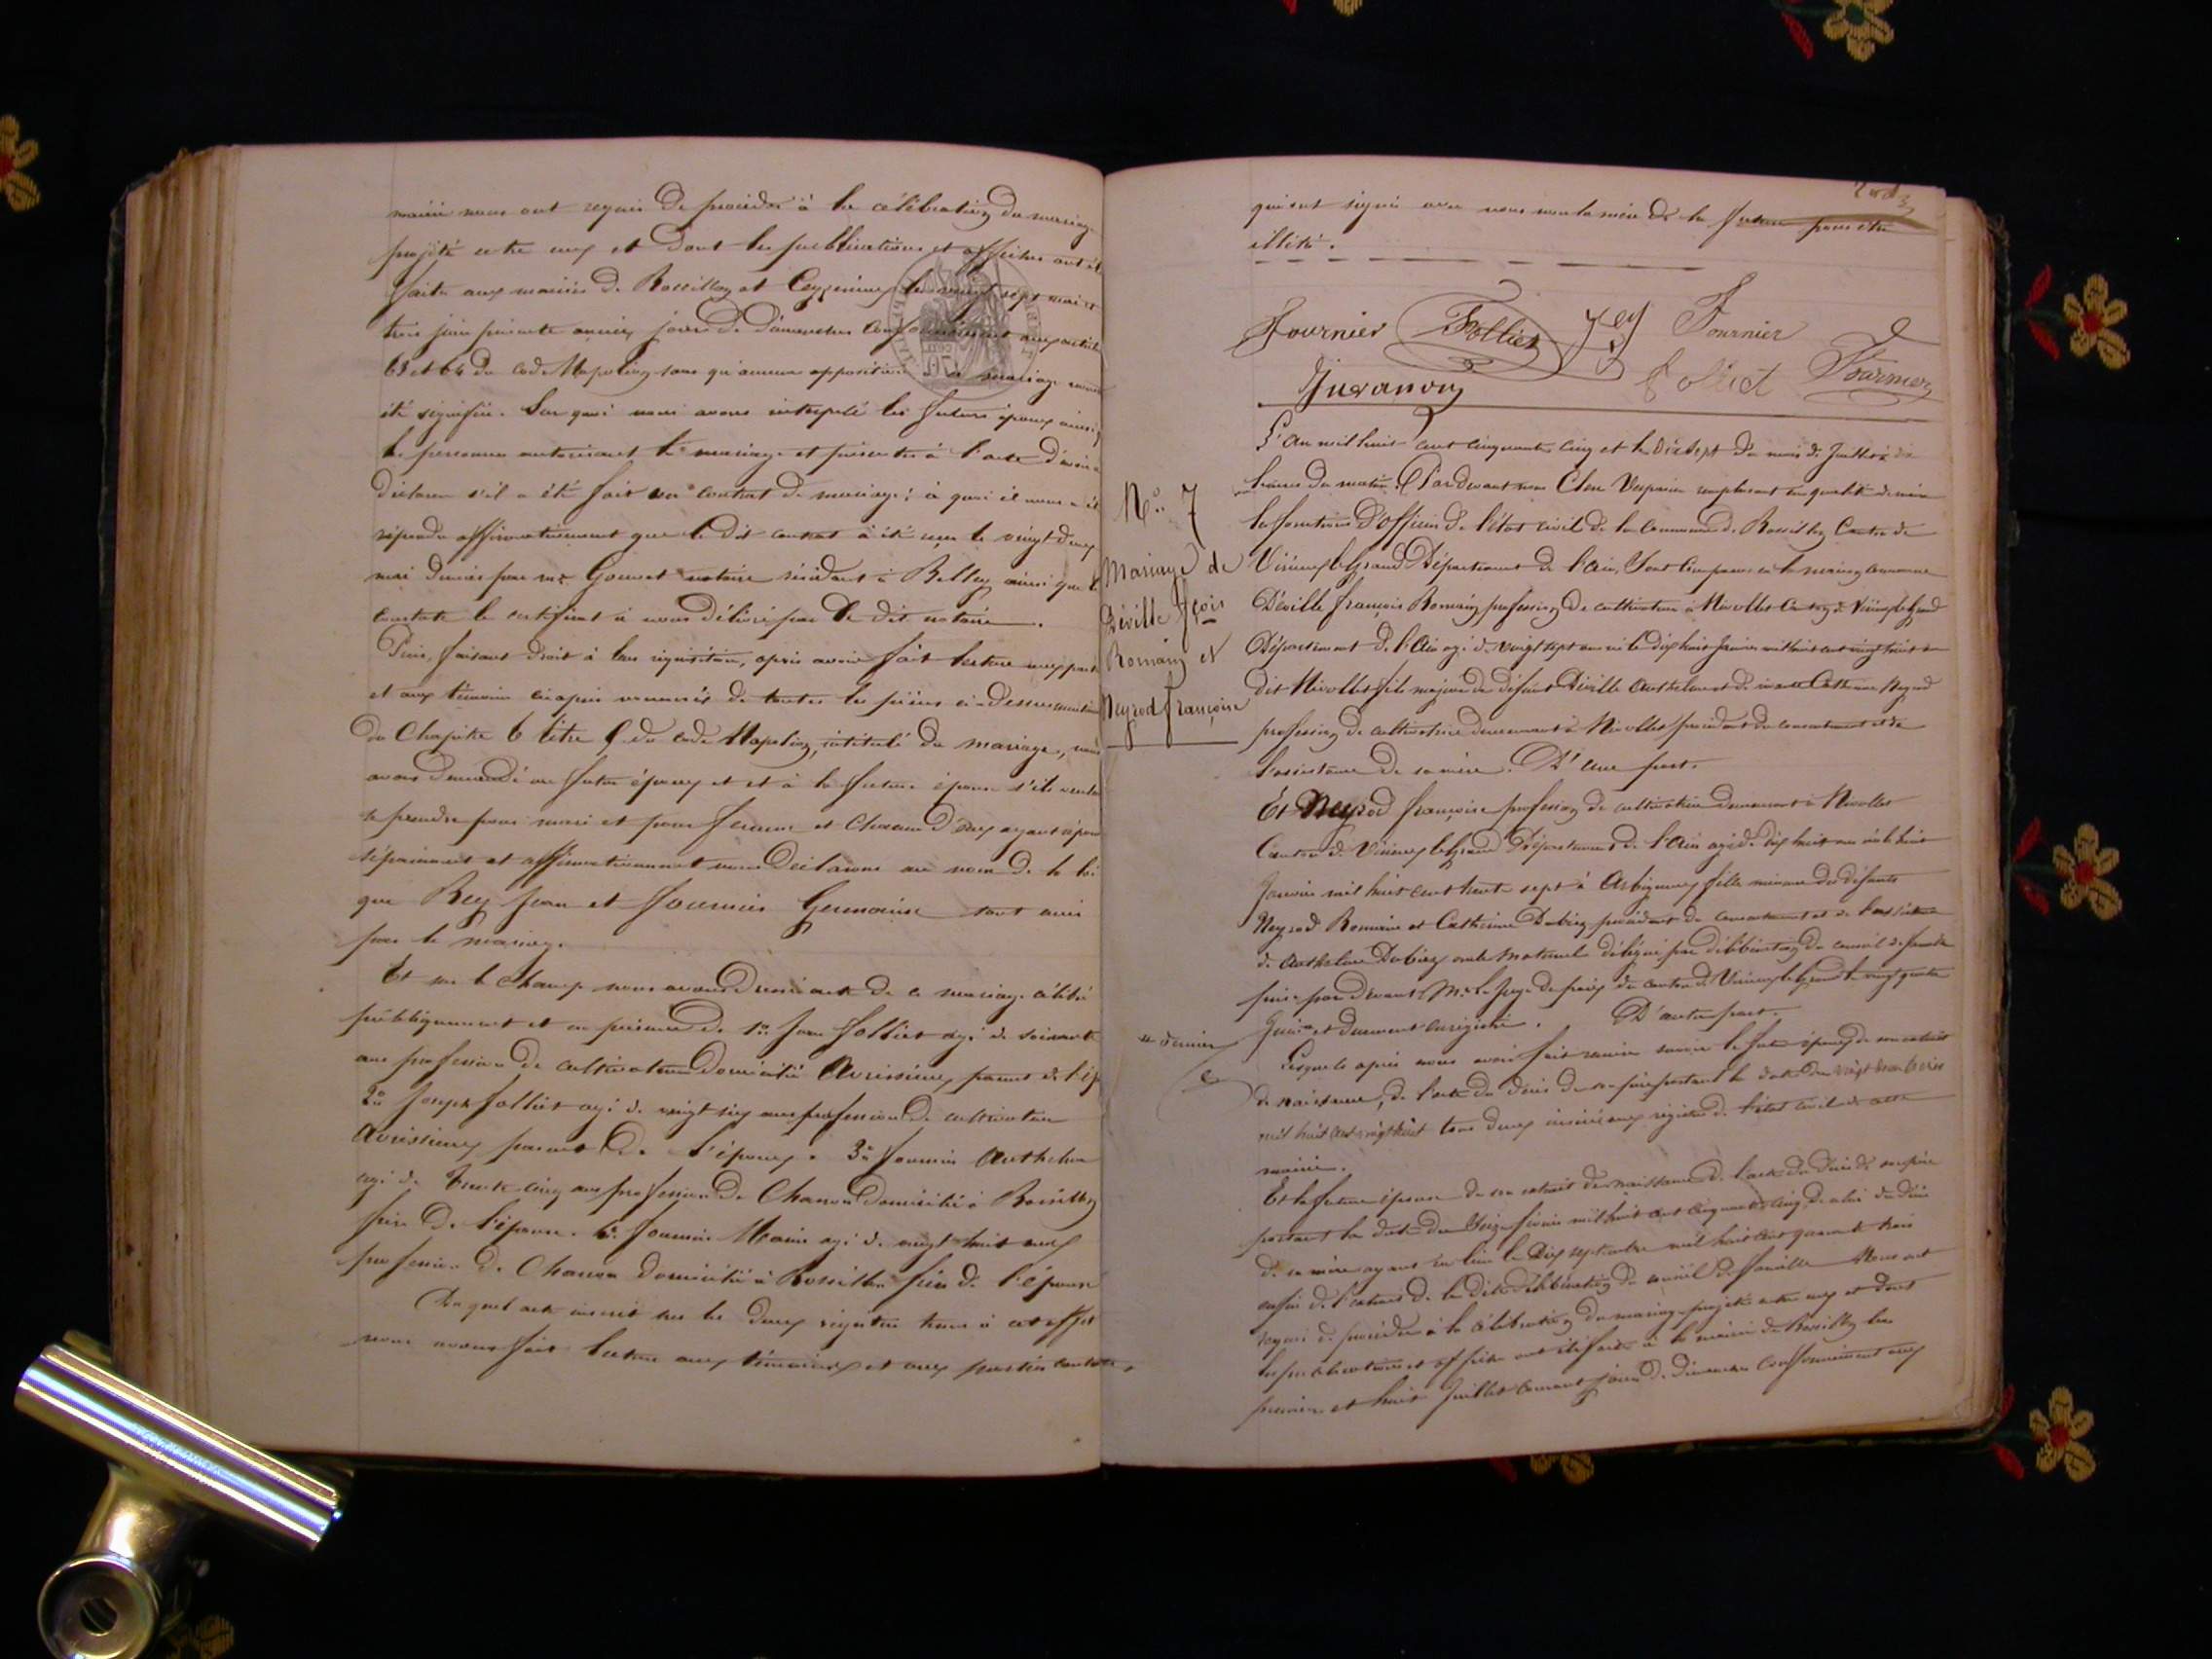 mairie nous ont requis de procéder à la célébration du mariage
projeté entre eux et dont les publications et affiches ont été
faites aux mairies de Rossillon et Ceyzerieux les vingt sept mai et
trois juin présente année jours de dimanches conformément aux articles
63 et 64 du code Napoléon sans qu'aucune opposition mariage
été signifiée. Sur quoi nous avons interpelé les futurs époux ainsi
les personnes autorisant le mariage et présentes à l'acte d'avoir à
déclarer s'il a été fait un contrat de mariage; à quoi il nous a été
répondu affirmativement que le dit contrat à été reçu le vingt deux
mai dernier par me Gonnet notaire résidant à Belley ainsi que le
constate le certificat à nous délivré par le dit notaire.
Puis, faisant droit à leur réquisition, après avoir fait lecture aux parties
et aux témoins ci après nommés de toutes les pièces ci-dessus
du Chapitre 6 titre 5 du code Napoléon, intitulé du mariage, nous
avons demandé au futur époux et et à la future épouse s'ils veulent
se prendre pour mari et pour femme et chacun d'eux ayant répondu
séparément et affirmativement nous déclarons au nom de la loi
que Rey Jean et Fournier Germaine sont unis
par le mariage.
Et sur le champ nous avons dressé acte de ce mariage célébré
publiquement et en présence de 1o Jean Folliet agé de soixante
ans profession de cultivateur domicilié Avrissieux parent de l'ép
2o Joseph Folliet agé de vingt six ans profession de cultivateur
Avrissieux parent de l'époux. 3o Fournier Anthelme
agé de trente cinq ans profession de domicilié à Rossillon
frère de l'épouse. 4o Fournier Marin agé de vingt huit ans
profession de domicilié à Rossillon frère de l'épouse
Du quel acte inscrit sur les deux registres tenus à cet effet
nous avons fait lecture aux témoins et aux parties
qui ont signé avec nous non la mère de la future pour être
illitéré.
Fournier Folliet Rey Fournier
Juvanon Folliet Fournier
No 7
Mariage de
Déville fçois
Romain et
Neyrod françoise
L'an mil huit cent cinquante cinq et le dix sept du mois de Juillet à dix
heures du matin. Par devant nous remplissant en qualité de maire
les fonctions d'officier de l'état civil de la commune de Rossillon Canton de
Virieux le Grand Département de l'Ain, Sont comparus en la maison commune
Déville françois Romain profession de cultivateur à Nivollet Canton de Virieux le Grand
Département de l'Ain agé de vingt sept ans né le dix huit janvier mil huit cent vingt huit au
dit Nivollet fils majeur de défunt Déville Anthelme et de vivante Catherine Neyrod
profession de cultivatrice demeurant à Nivollet procédant du consentement et de
l'assistance de sa mère. D'une part.
Et Neyrod françoise profession de cultivatrice demeurant à Nivollet
Canton de Virieux le Grand Département de l'Ain agé de dix huit ans née le huit
Janvier mil huit cent trente sept à Arbignieux fille mineure des défunts
Neyrod Romain et Catherine Dubiez procédant du consentement et de l'assistance
de Anthelme Dubiez oncle maternel délégué par délibération du conseil de famille
prise par devant Mr le Juge de paix du canton de Virieux le Grand le vingt quatre
Juin et dûment enregistré. D'autre part.
dernier
Lesquels après nous avoir fait remise savoir le futur époux de son extrait
de naissance, de l'acte de décès de son père portant la date du vingt
mil huit cent vingt huit tous deux inscrits aux registres de l'état civil de cette
mairie.
Et la future épouse de son extrait de naissance de l'acte de décès de son père
portant la date du Seize février mil huit cent cinquante cinq de celui de décès
de sa mère ayant eu lieu le dix septembre mil huit cent quarante trois
enfin de l'extrait de la dite délibération du conseil de famille Nous ont
requis de procéder à la célébration du mariage projeté entre eux et dont
les publications et affiches ont été faites à la mairie de Rossillon les
premier et huit Juillet courant jours de dimanches conformément aux